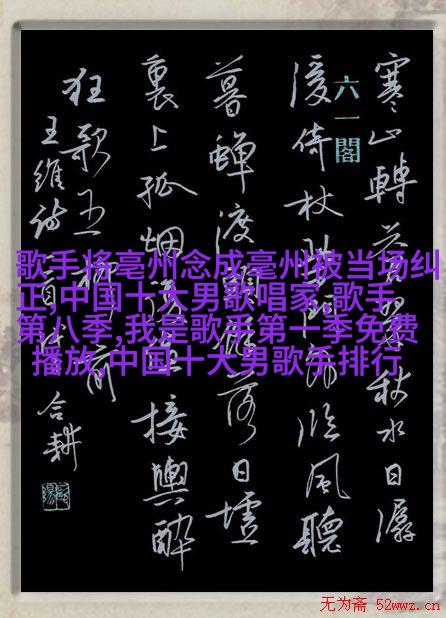 寒山轉蒼翠秋水日潺
湲倚杖柴門外臨風聽
暮蟬渡頭餘落日墟
裏上孤烟復值接輿醉
狂歌五柳前
王維诗
合耕
六一閣
歌手将亳州念成毫州被当场纠
正,中国十大男歌唱家,歌手
第八季,我是歌手第一季免费
播放,中国十大男歌手排行
无为斋 52wwz.cn